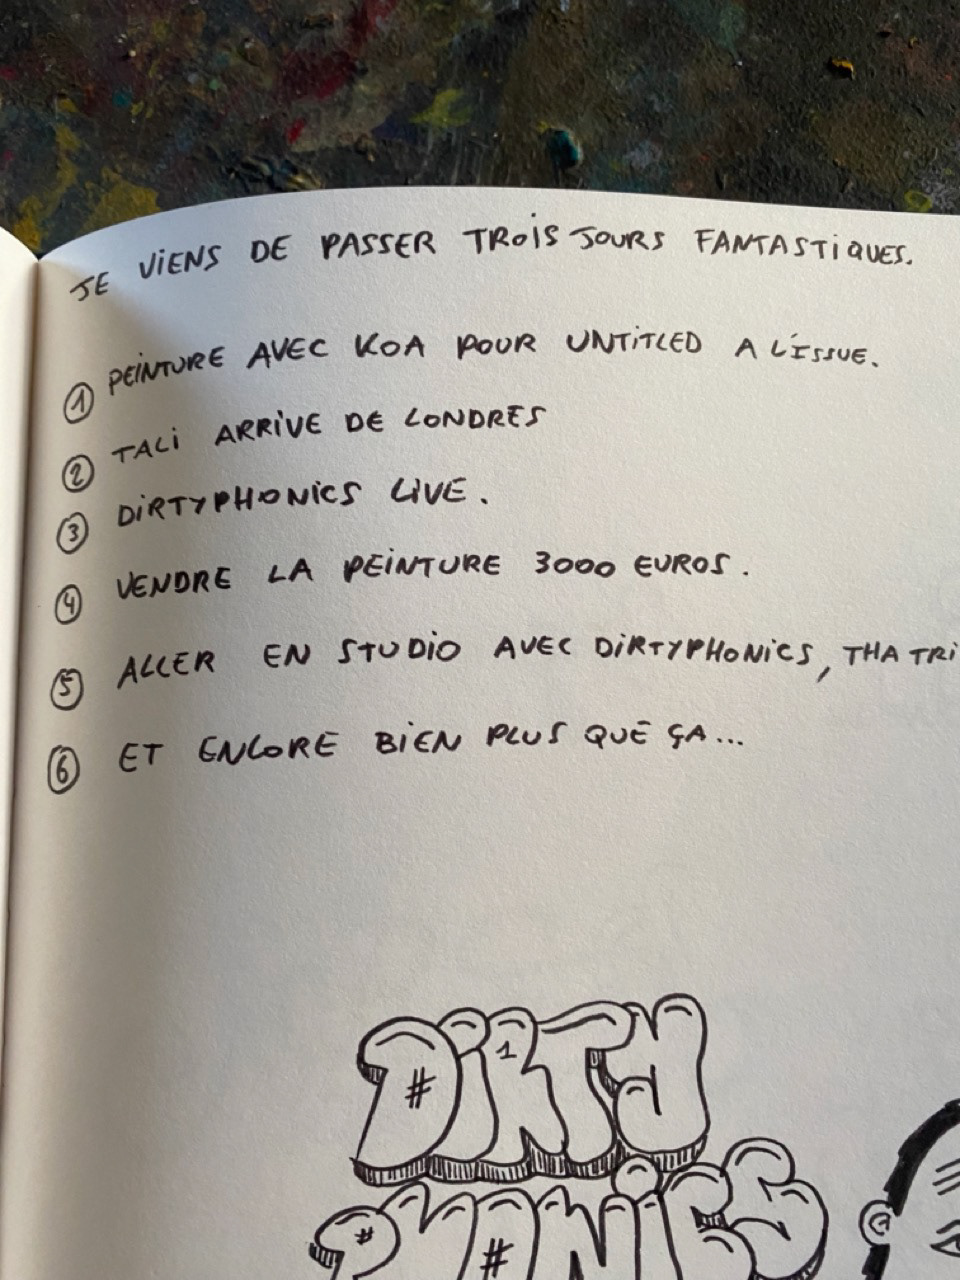 JE VIENS DE PASSER TROIS JOURS FANTASTIQUES.
① PEINTURE AVEC KOA POUR UNTITLED A L'ISSUE.
② TALI ARRIVE DE LONDRES
③ DIRTYPHONICS LIVE.
④ VENDRE LA PEINTURE 3000 EUROS.
⑤ ALLER EN STUDIO AVEC DIRTYPHONICS, THA TRI
⑥ ET ENCORE BIEN PLUS QUE ÇA...
DIRTY
# 1
PHONICS
# #